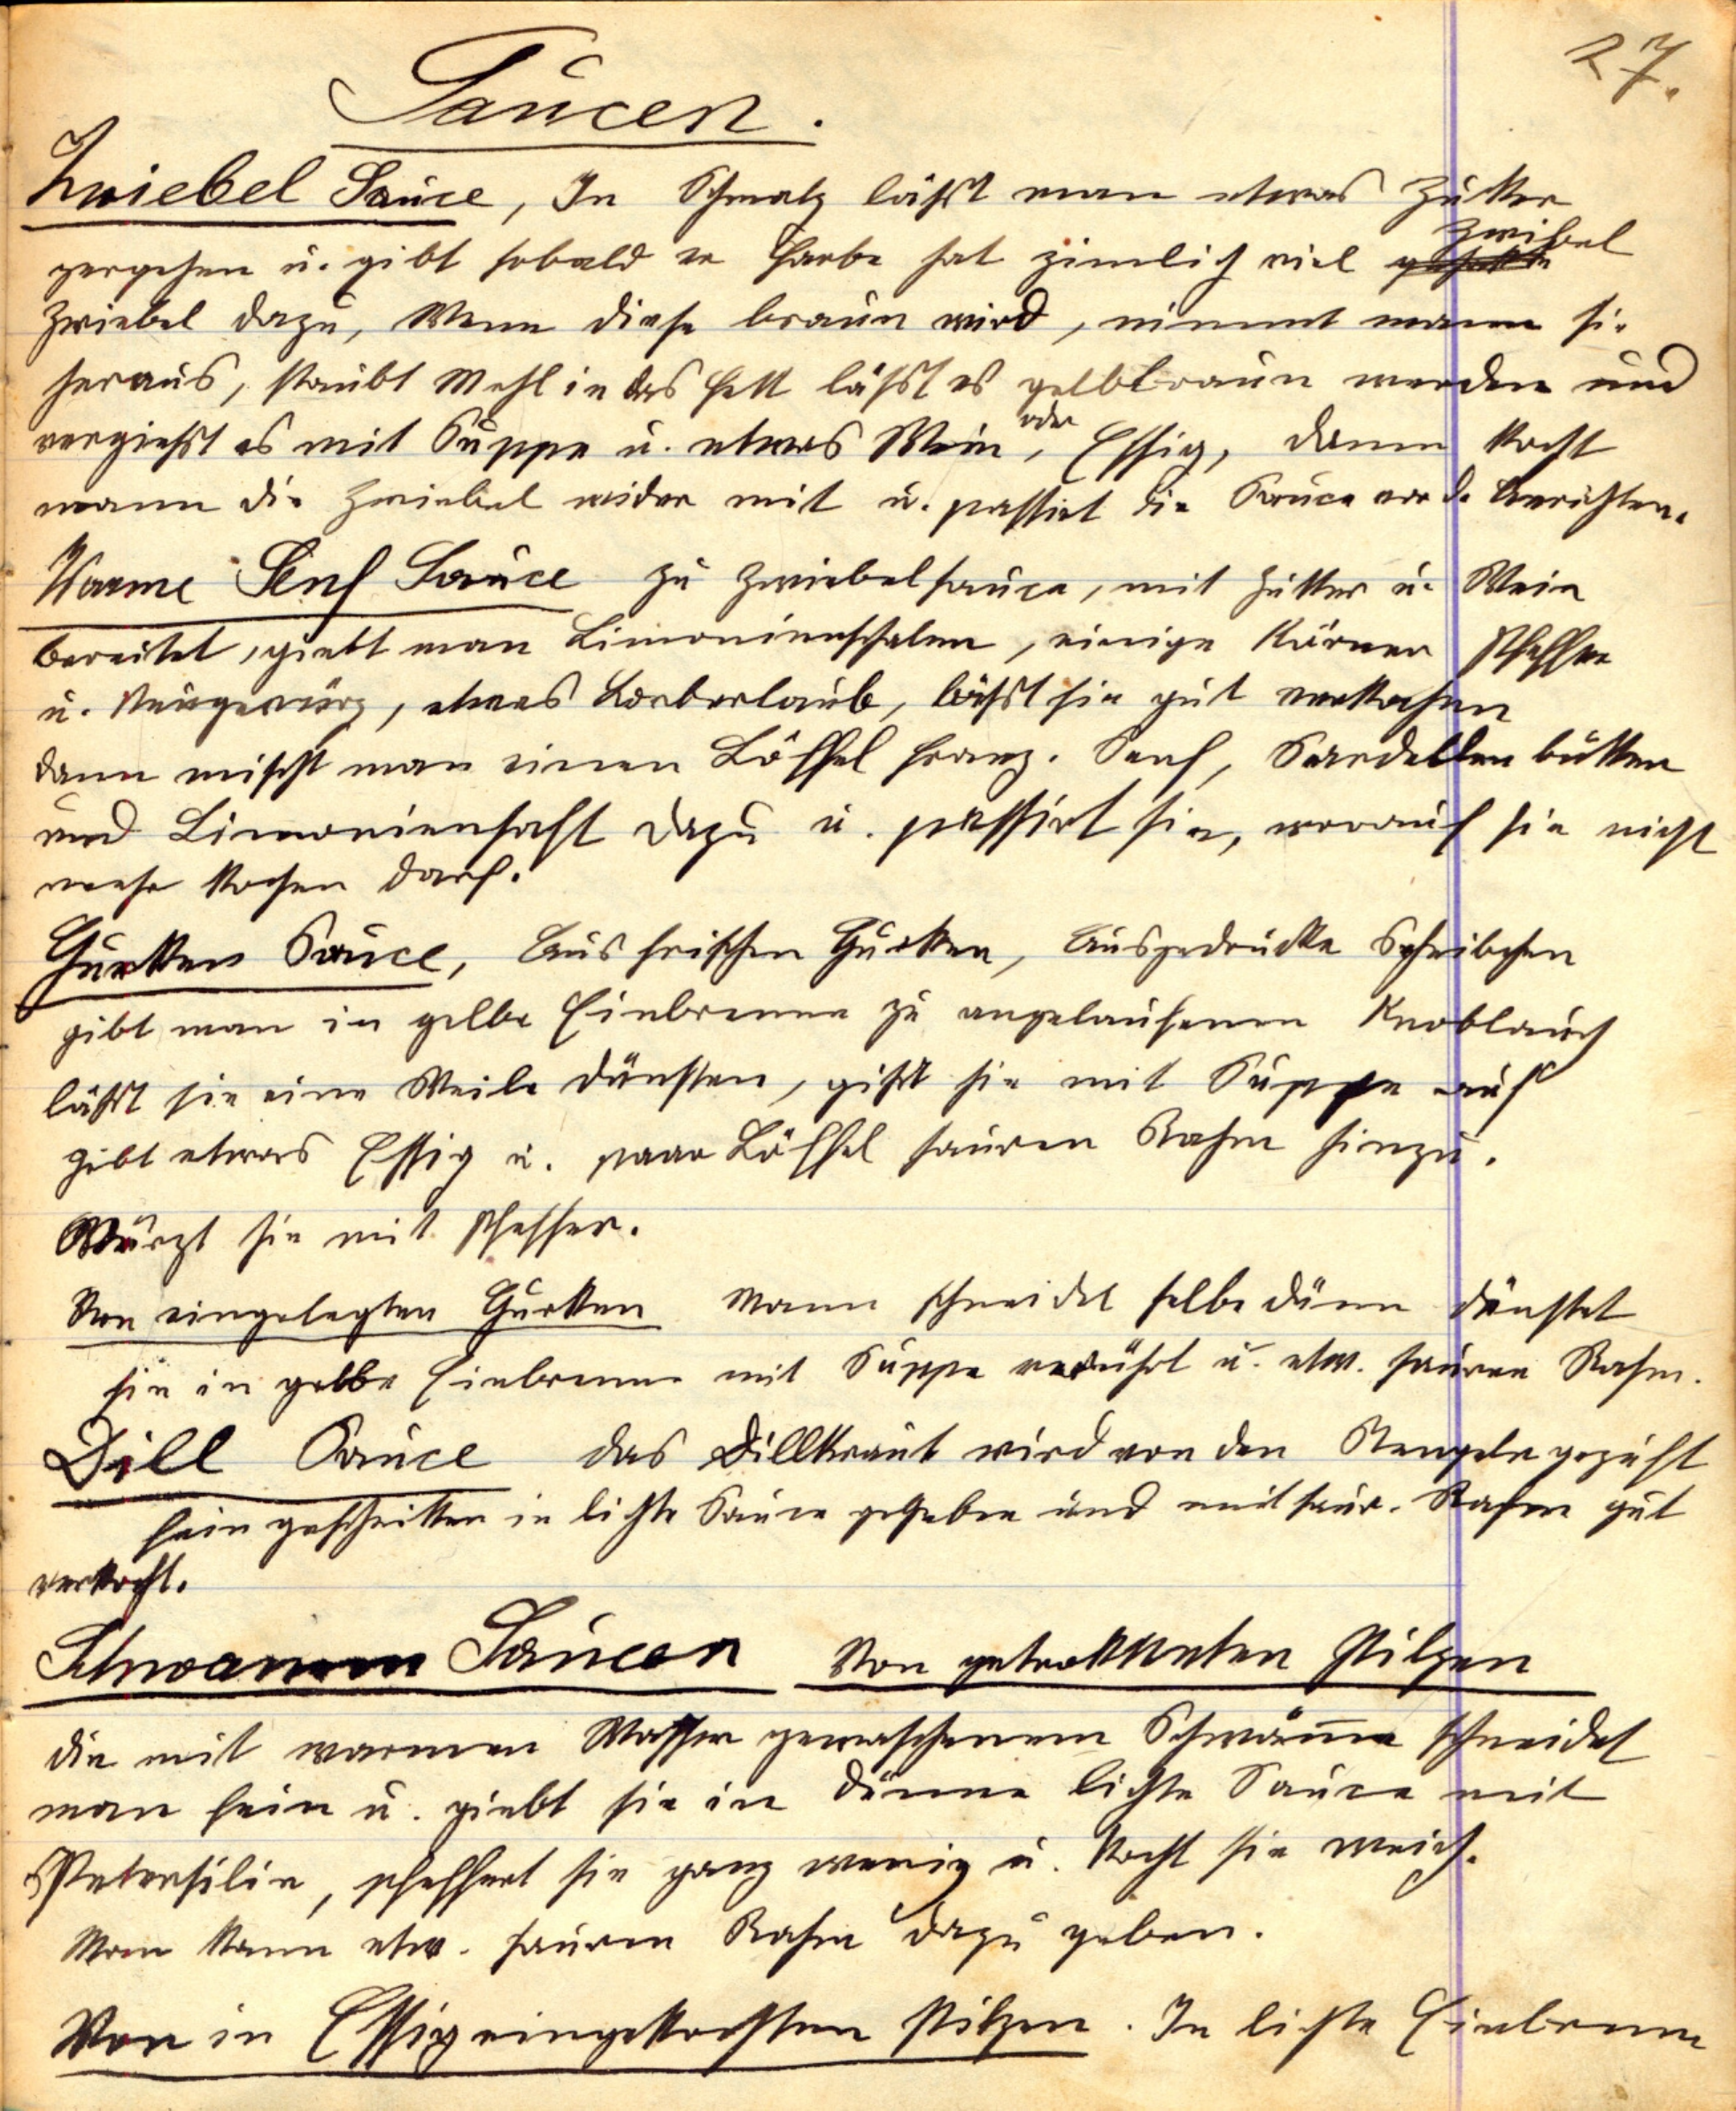 27.
Saucen.
Zwiebel Sauce, In Schmalz läßt man etwas Zukker
zergehen u. gibt sobald er Farbe hat zimlich viel Zwibel
Zwiebel dazu, Wenn diese braun wird, nimmt mann sie
heraus, staubt Mehl in das Fett läßt es gelbbraun werden und
vergießt es mit Suppe u. etwas Wein, oder Essig, dann kocht
mann die Zwiebel wider mit u. passirt die Sauce vor d. Anrichten.
Warme Senf Sauce zu Zwiebelsauce, mit Zukker u. Wein
bereitet, giebt man Limonienschalen, einige Körner Pfeffer
u. Neugewürz, etwas Lorberlaub, läßt sie gut verkochen
dann mischt man einen Löffel franz. Senf, Sardellenbutter
und Limoniensaft dazu u. passirt sie, worauf sie nicht
mehr kochen darf.
Gurken Sauce, Aus frischen Gurken, Ausgedrückte Scheibchen
gibt man in gelbe Einbrenne zu angelaufenen Knoblauch
läßt sie eine Weile dünsten, gißt sie mit Suppe auf
gibt etwas Essig u. paar Löffel sauren Rahm hinzu.
Würzt sie mit Pfeffer.
Von eingelegten Gurken Mann schneidet selbe dünn dünstet
sie in gelbe Einbrenn mit Suppe verrührt u. etw. sauren Rahm.
Dill Sauce das Dillkraut wird von den Stengeln gezupft
fein geschnitten in lichte Sauce gegeben und mit saur. Rahm gut
verkocht.
Schwamm Saucen Von getrokkneten Pilzen
die mit warmen Wasser gewaschenen Schwämme schneidet
man fein u. giebt sie in dünne lichte Sauce mit
Petersilie, pfeffert sie ganz wenig u. kocht sie weich.
Man kann etw. sauren Rahm dazu geben.
Von in Essig eingekochten Pilzen. In lichte Einbrenn